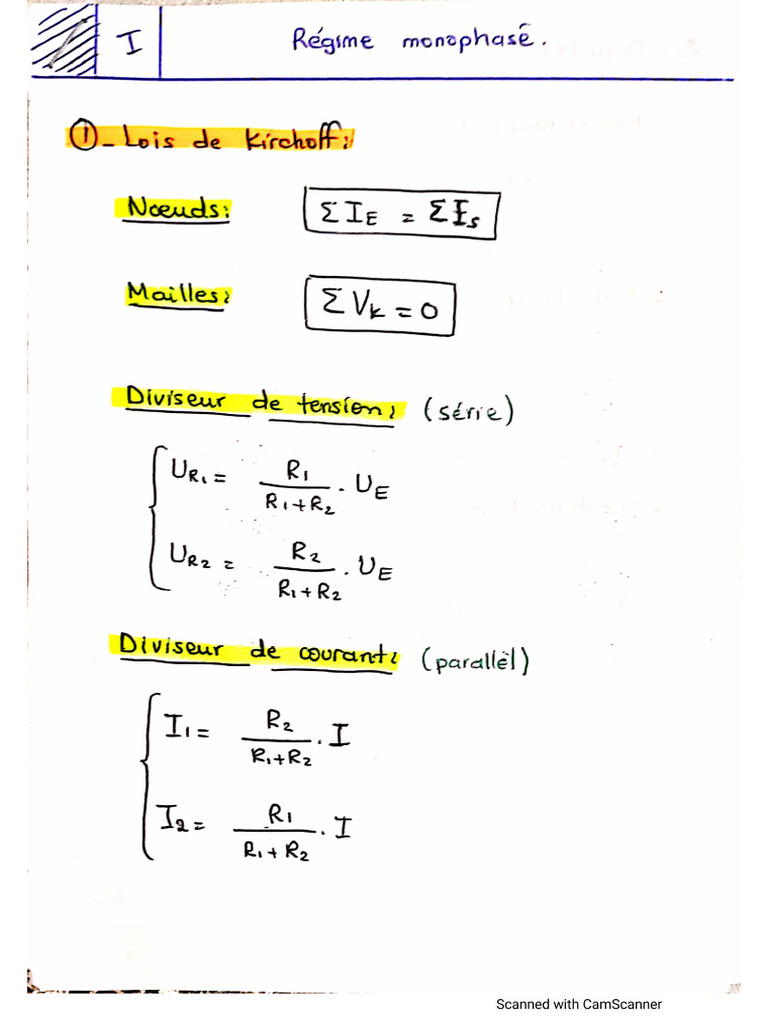 I
Régime monophasé.
① - Lois de Kirchoff:
Nœuds: Σ I_E = Σ I_s
Mailles: Σ V_k = 0
Diviseur de tension: (série)
U_R1 = R1 / (R1 + R2) . U_E
U_R2 = R2 / (R1 + R2) . U_E
Diviseur de courant: (parallèl)
I1 = R2 / (R1 + R2) . I
I2 = R1 / (R1 + R2) . I
Scanned with CamScanner